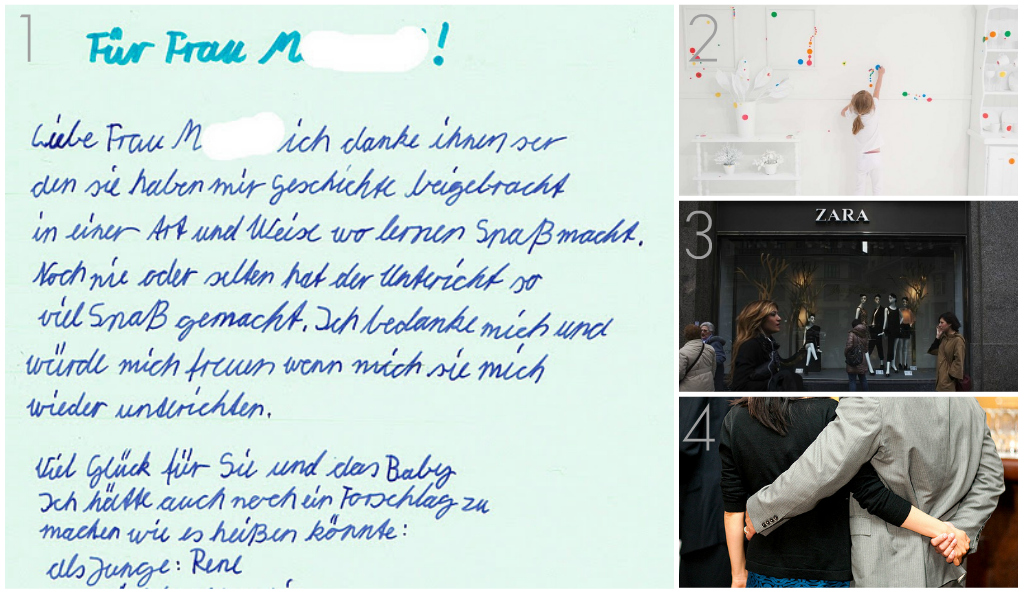 1
Für Frau M !
Liebe Frau M ich danke ihnen ser
den sie haben mir Geschichte beigebracht
in einer Art und Weise wo lernen Spaß macht.
Noch nie oder selten hat der Unterricht so
viel Spaß gemacht. Ich bedanke mich und
würde mich freuen wenn mich sie mich
wieder unterichten.
Viel Glück für Sie und das Baby
Ich hätte auch noch ein Forschlag zu
machen wie es heißen könnte:
als Junge: René
2
3
ZARA
4